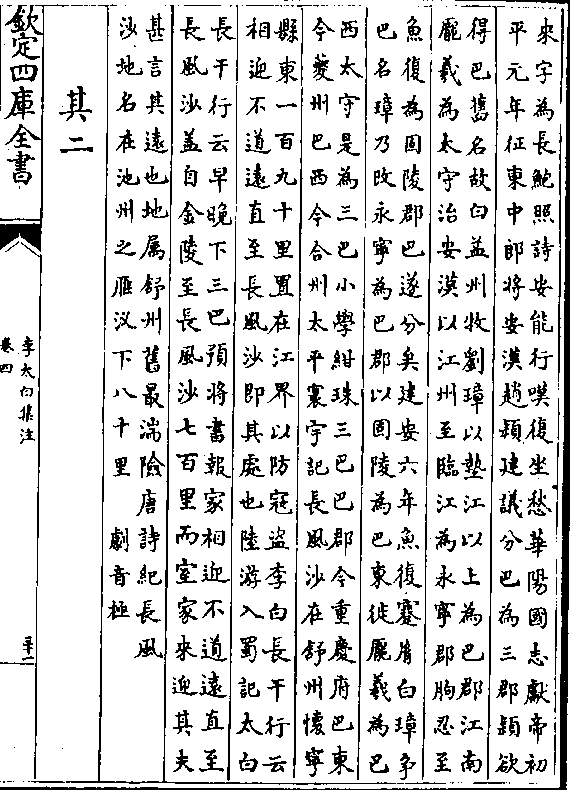 來字為長鮑照詩安能行嘆復坐愁華陽國志獻帝初
平元年征東中郎將安漢趙頴建議分巴為三郡頴欲
得巴舊名故白益州牧劉璋以墊江以上為巴郡江南
龎羲為太守治安漢以江州至臨江為永寧郡朐忍至
魚復為固陵郡巴遂分矣建安六年魚復蹇胤白璋争
巴名璋乃改永寧為巴郡以固陵為巴東徙龎羲為巴
西太守是為三巴小學紺珠三巴巴郡今重慶府巴東
今夔州巴西今合州太平寰宇記長風沙在舒州懷寧
縣東一百九十里置在江界以防寇盜李白長干行云
相迎不道遠直至長風沙即其處也陸游入蜀記太白
長干行云早晚下三巴預將書報家相迎不道遠直至
長風沙蓋自金陵至長風沙七百里而室家來迎其夫
甚言其遠也地属舒州舊最湍險唐詩紀長風
沙地名在池州之雁汊下八十里　劇音極
其二
欽定四庫全書
李太白集注
卷四